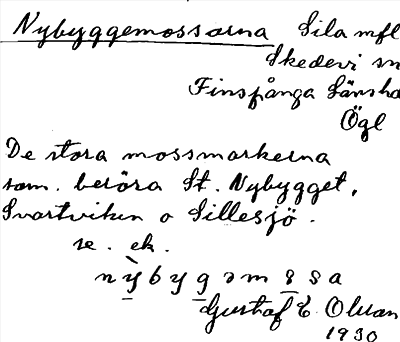 Nybyggemossarna Sila mfl
Skedevi sn
Finspånga Länshd
Ögl
De stora mossmarkerna
som. beröra St. Nybygget,
Svartviken o Sillesjö.
se. ek.
nỳbygəmsa
Gustaf E. Olsson
1930